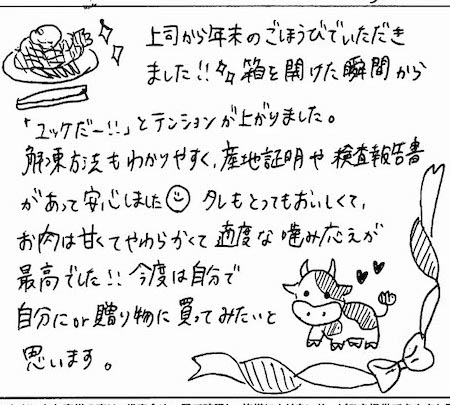 上司から年末のごほうびでいただき
ました!! 箱を開けた瞬間から
「ユッケだー!!」とテンションが上がりました。
解凍方法もわかりやすく、産地証明や検査報告書
があって安心しました タレもとってもおいしくて、
お肉は甘くてやわらかくて適度な噛み応えが
最高でした!! 今度は自分で
自分にor贈り物に買ってみたいと
思います。